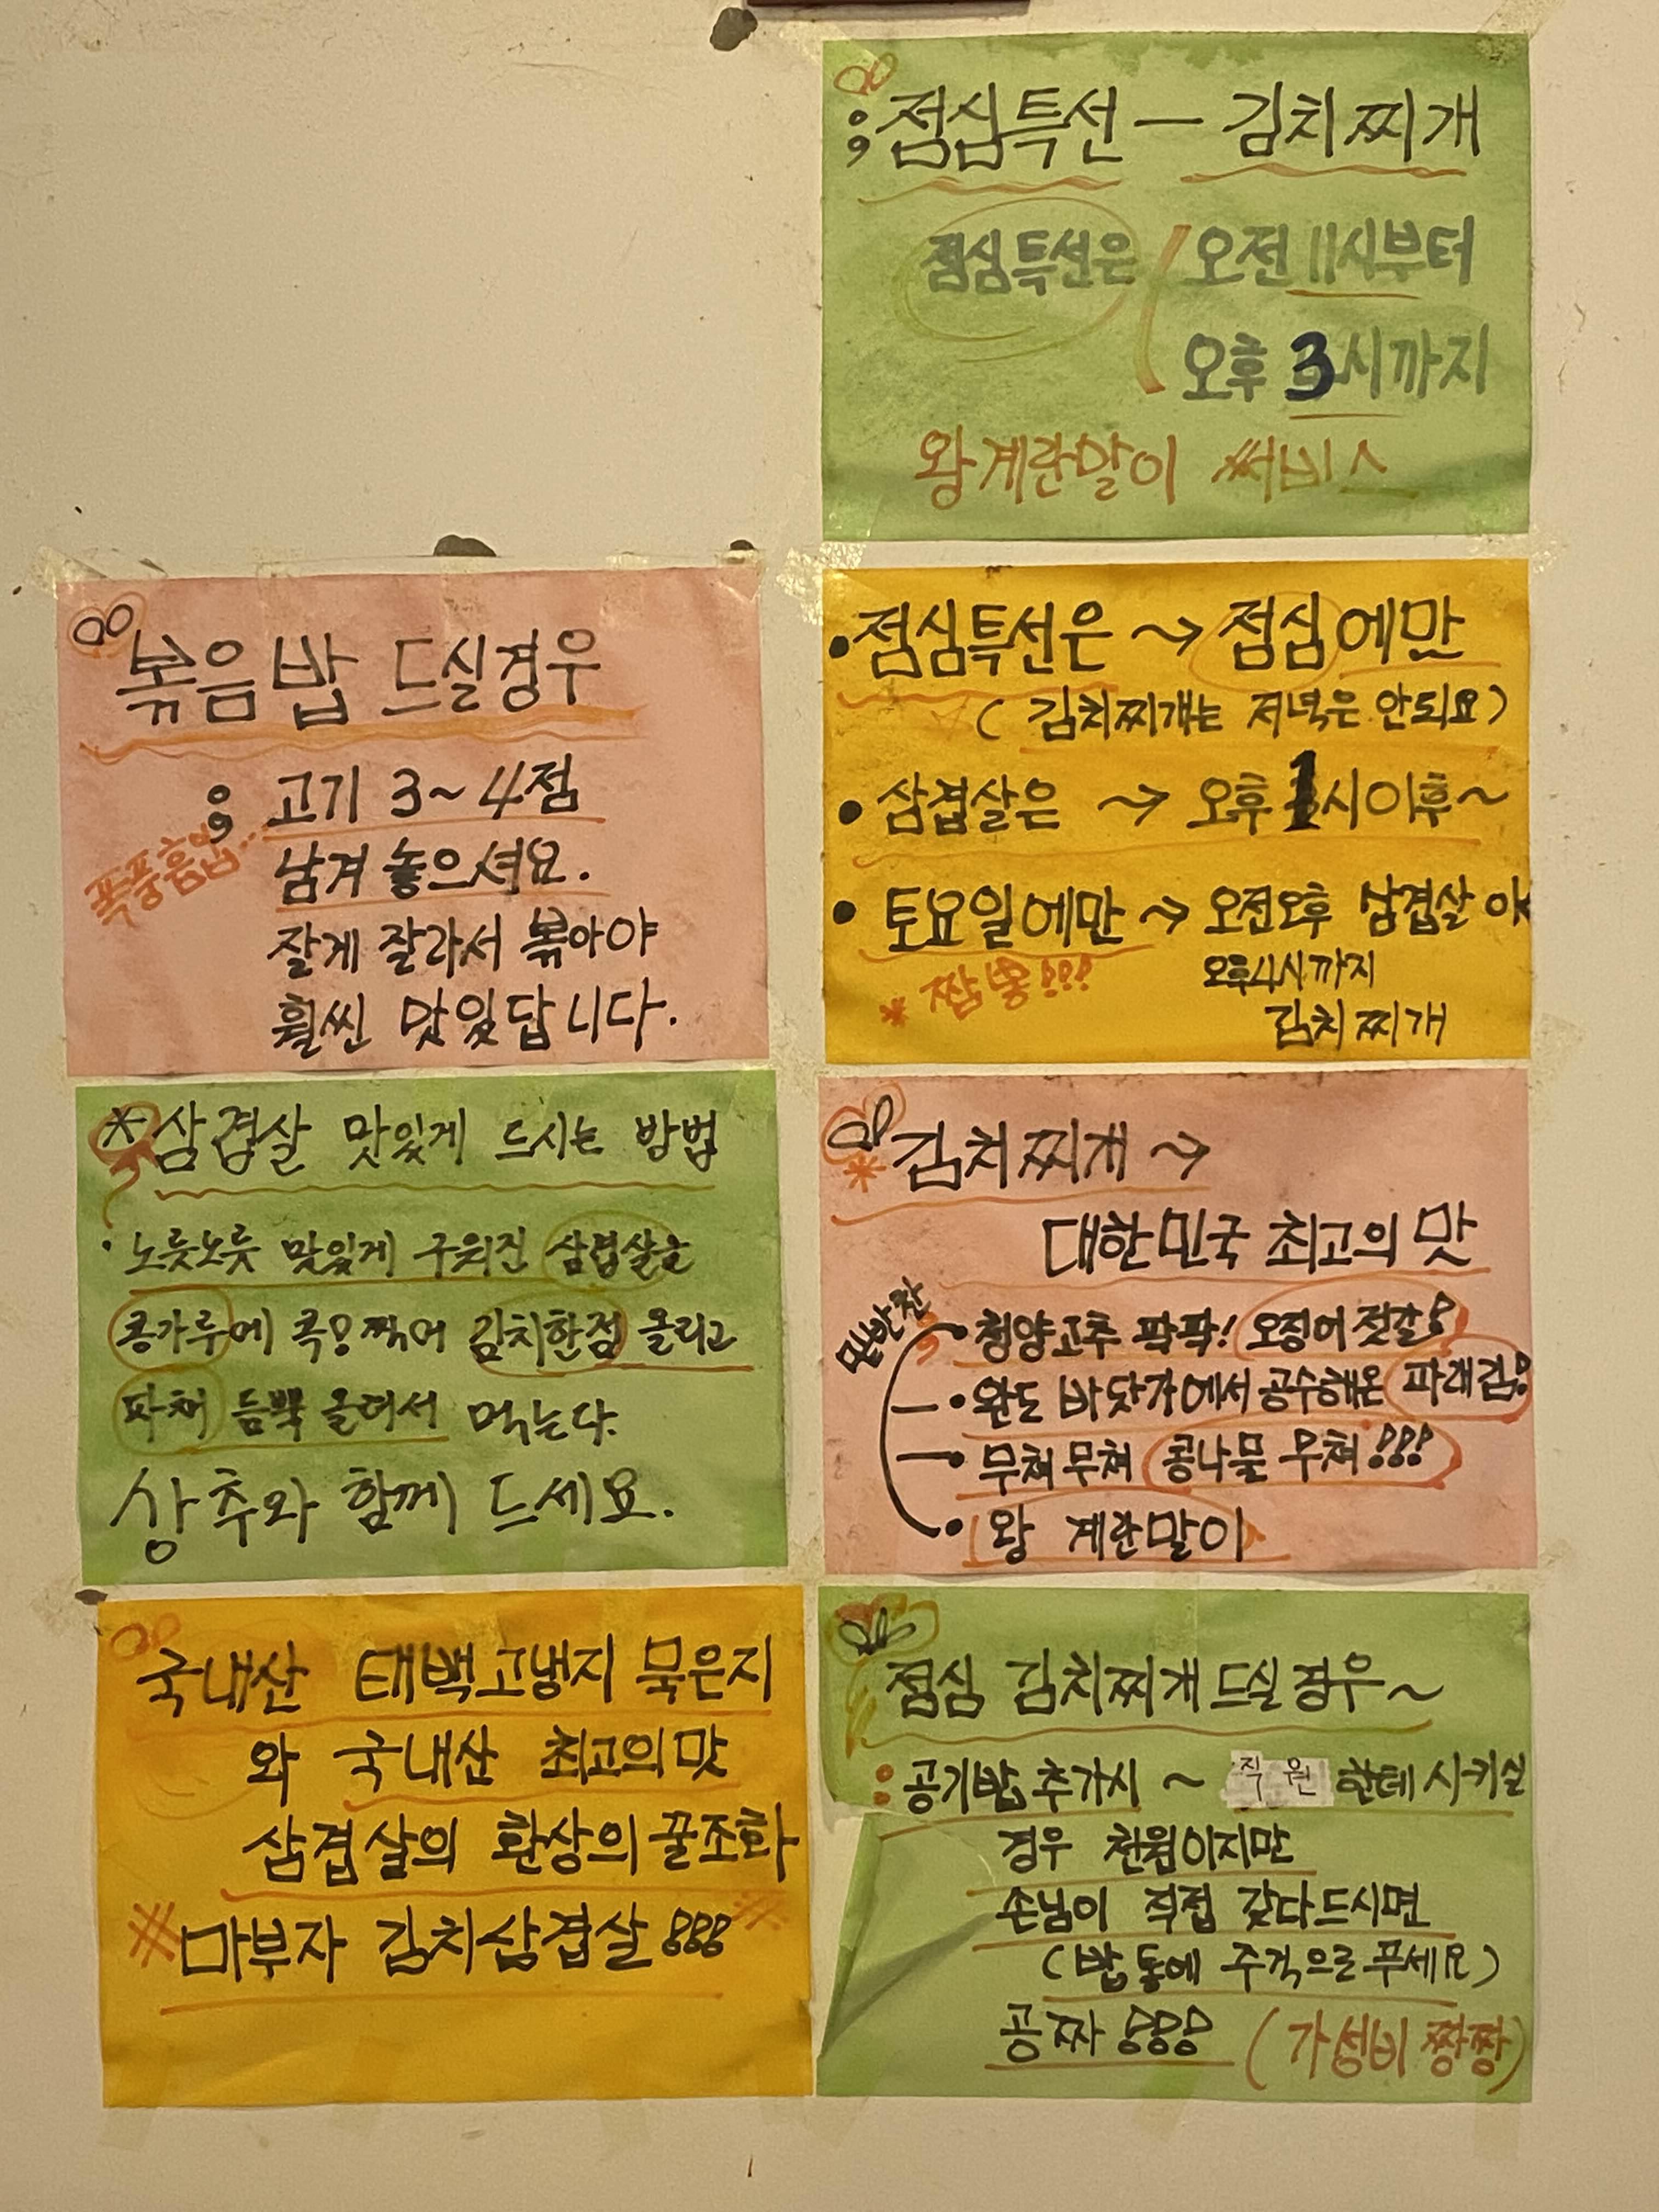 점심특선 — 김치찌개
점심특선은 오전 11시부터
오후 3시까지
왕계란말이 써비스
볶음밥 드실경우
고기 3~4점
폭풍흡입...
남겨 놓으셔요.
잘게 잘라서 볶아야
훨씬 맛있답니다.
• 점심특선은 → 점심에만
(김치찌개는 저녁은 안되요)
• 삼겹살은 → 오후 1시이후~
• 토요일에만 → 오전오후 삼겹살 OK
* 짬뽕!!! 오후4시까지
김치찌개
*삼겹살 맛있게 드시는 방법
• 노릇노릇 맛있게 구워진 삼겹살을
콩가루에 콕! 찍어 김치한점 올리고
파채 듬뿍 올려서 먹는다.
상추와 함께 드세요.
* 김치찌개 →
대한민국 최고의 맛
밑반찬
• 청양고추 팍팍! 오징어 젓갈!
• 완도 바닷가에서 공수해온 파래김!
• 무쳐무쳐 콩나물 무쳐!!!
• 왕 계란말이
국내산 태백고냉지 묵은지
와 국내산 최고의맛
삼겹살의 환상의 꿀조화
※마부자 김치삼겹살!!!※
점심 김치찌개 드실경우~
: 공기밥 추가시 ~ 직원 한테 시키실
경우 천원이지만
손님이 직접 갖다드시면
(밥통에 주걱으로 푸세요)
공짜!!! (가성비 짱짱)